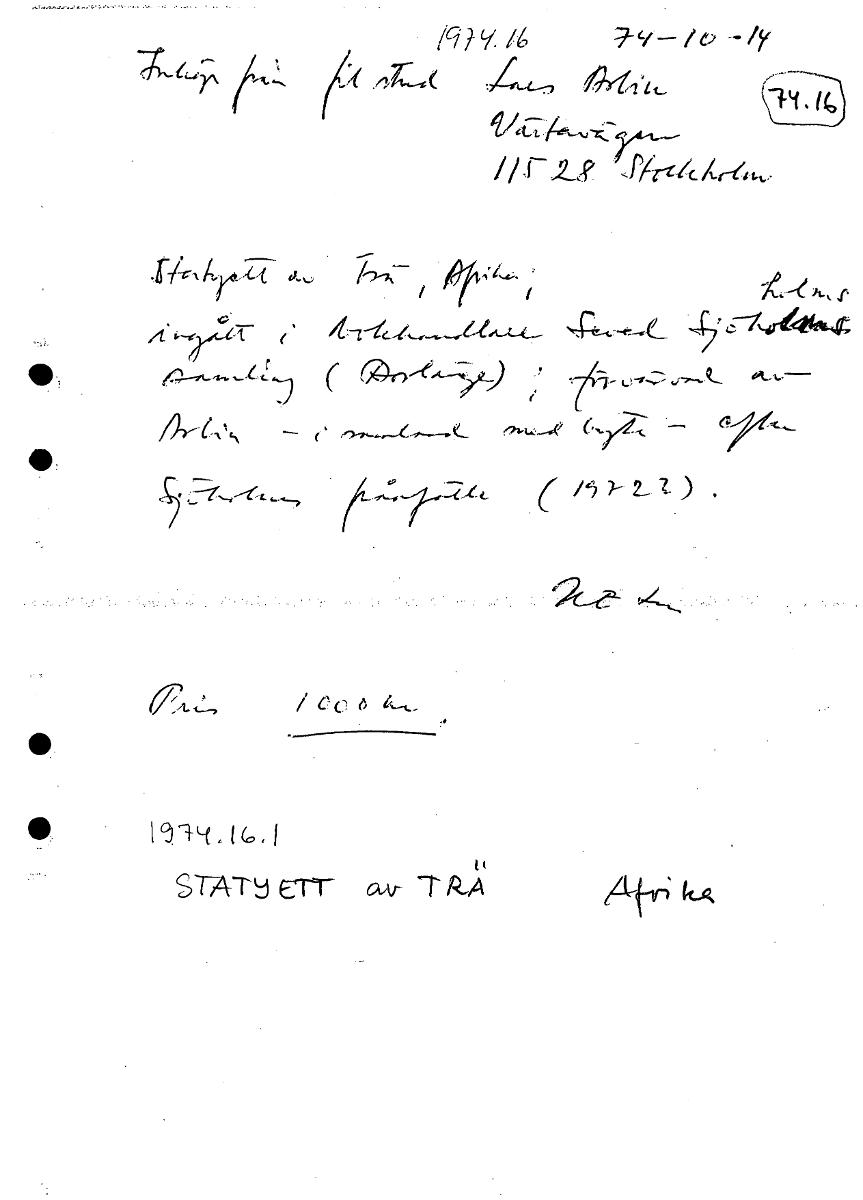 1974.16 74-10-14
Inköp från fil stud Lars Arlin
74.16
Värtavägen
11528 Stockholm
Statyett av Trä, Afrika,
holms
ingått i bokhandlare Seved Sjöholms
samling (Borlänge); förvärvad av
Arlin - i samband med byte - efter
Sjöholms frånfälle (1972?).
Pris 1000 kr.
1974.16.1
STATYETT av TRÄ Afrika